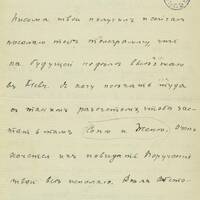 Письма твои получил и сейчас
послал тебе телеграмму, что
на будущей неделе выезжаю
в Киев. Я хочу поехать туда
с таким разсчетом, чтобы зас-
тать там и Женю. Очень
хочется их повидать. Поручения
твои все исполню.